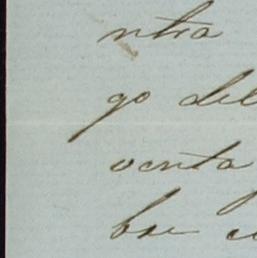 ntra
go del
venta